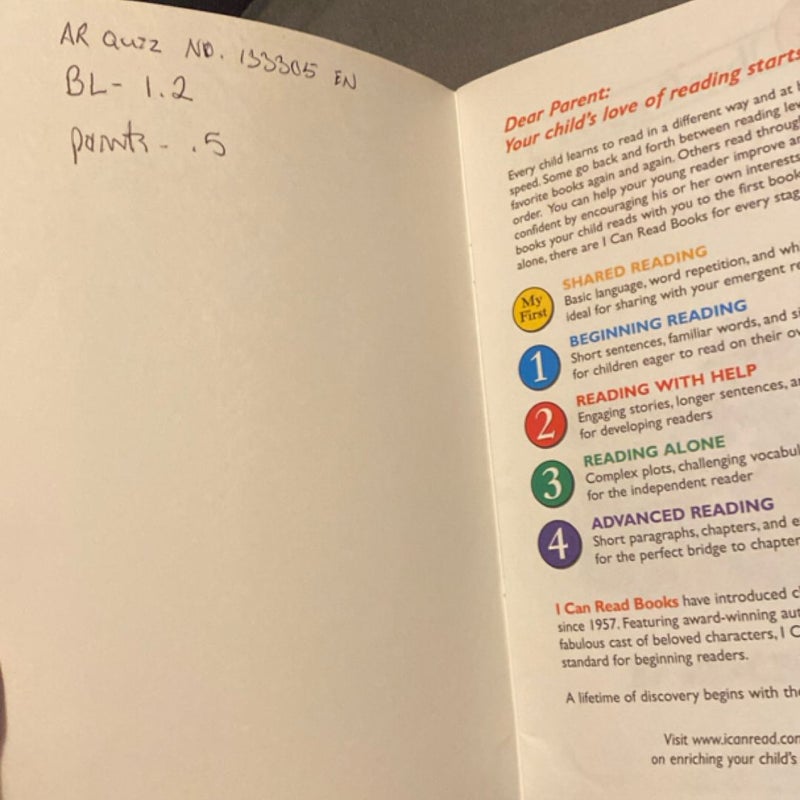 AR Quiz NO. 133305 EN
BL- 1.2
points - .5
Dear Parent:
Your child's love of reading starts
Every child learns to read in a different way and at
speed. Some go back and forth between reading
favorite books again and again. Others read through
order. You can help your young reader improve
confident by encouraging his or her own interests
books your child reads with you to the first book
alone, there are I Can Read Books for every
My
First
SHARED READING
Basic language, word repetition, and
ideal for sharing with your emergent
1
BEGINNING READING
Short sentences, familiar words, and
for children eager to read on their
2
READING WITH HELP
Engaging stories, longer sentences,
for developing readers
3
READING ALONE
Complex plots, challenging
for the independent reader
4
ADVANCED READING
Short paragraphs, chapters, and
for the perfect bridge to chapter
I Can Read Books have introduced
since 1957. Featuring award-winning
fabulous cast of beloved characters, I
standard for beginning readers.
A lifetime of discovery begins with
Visit www.icanread.com
on enriching your child's